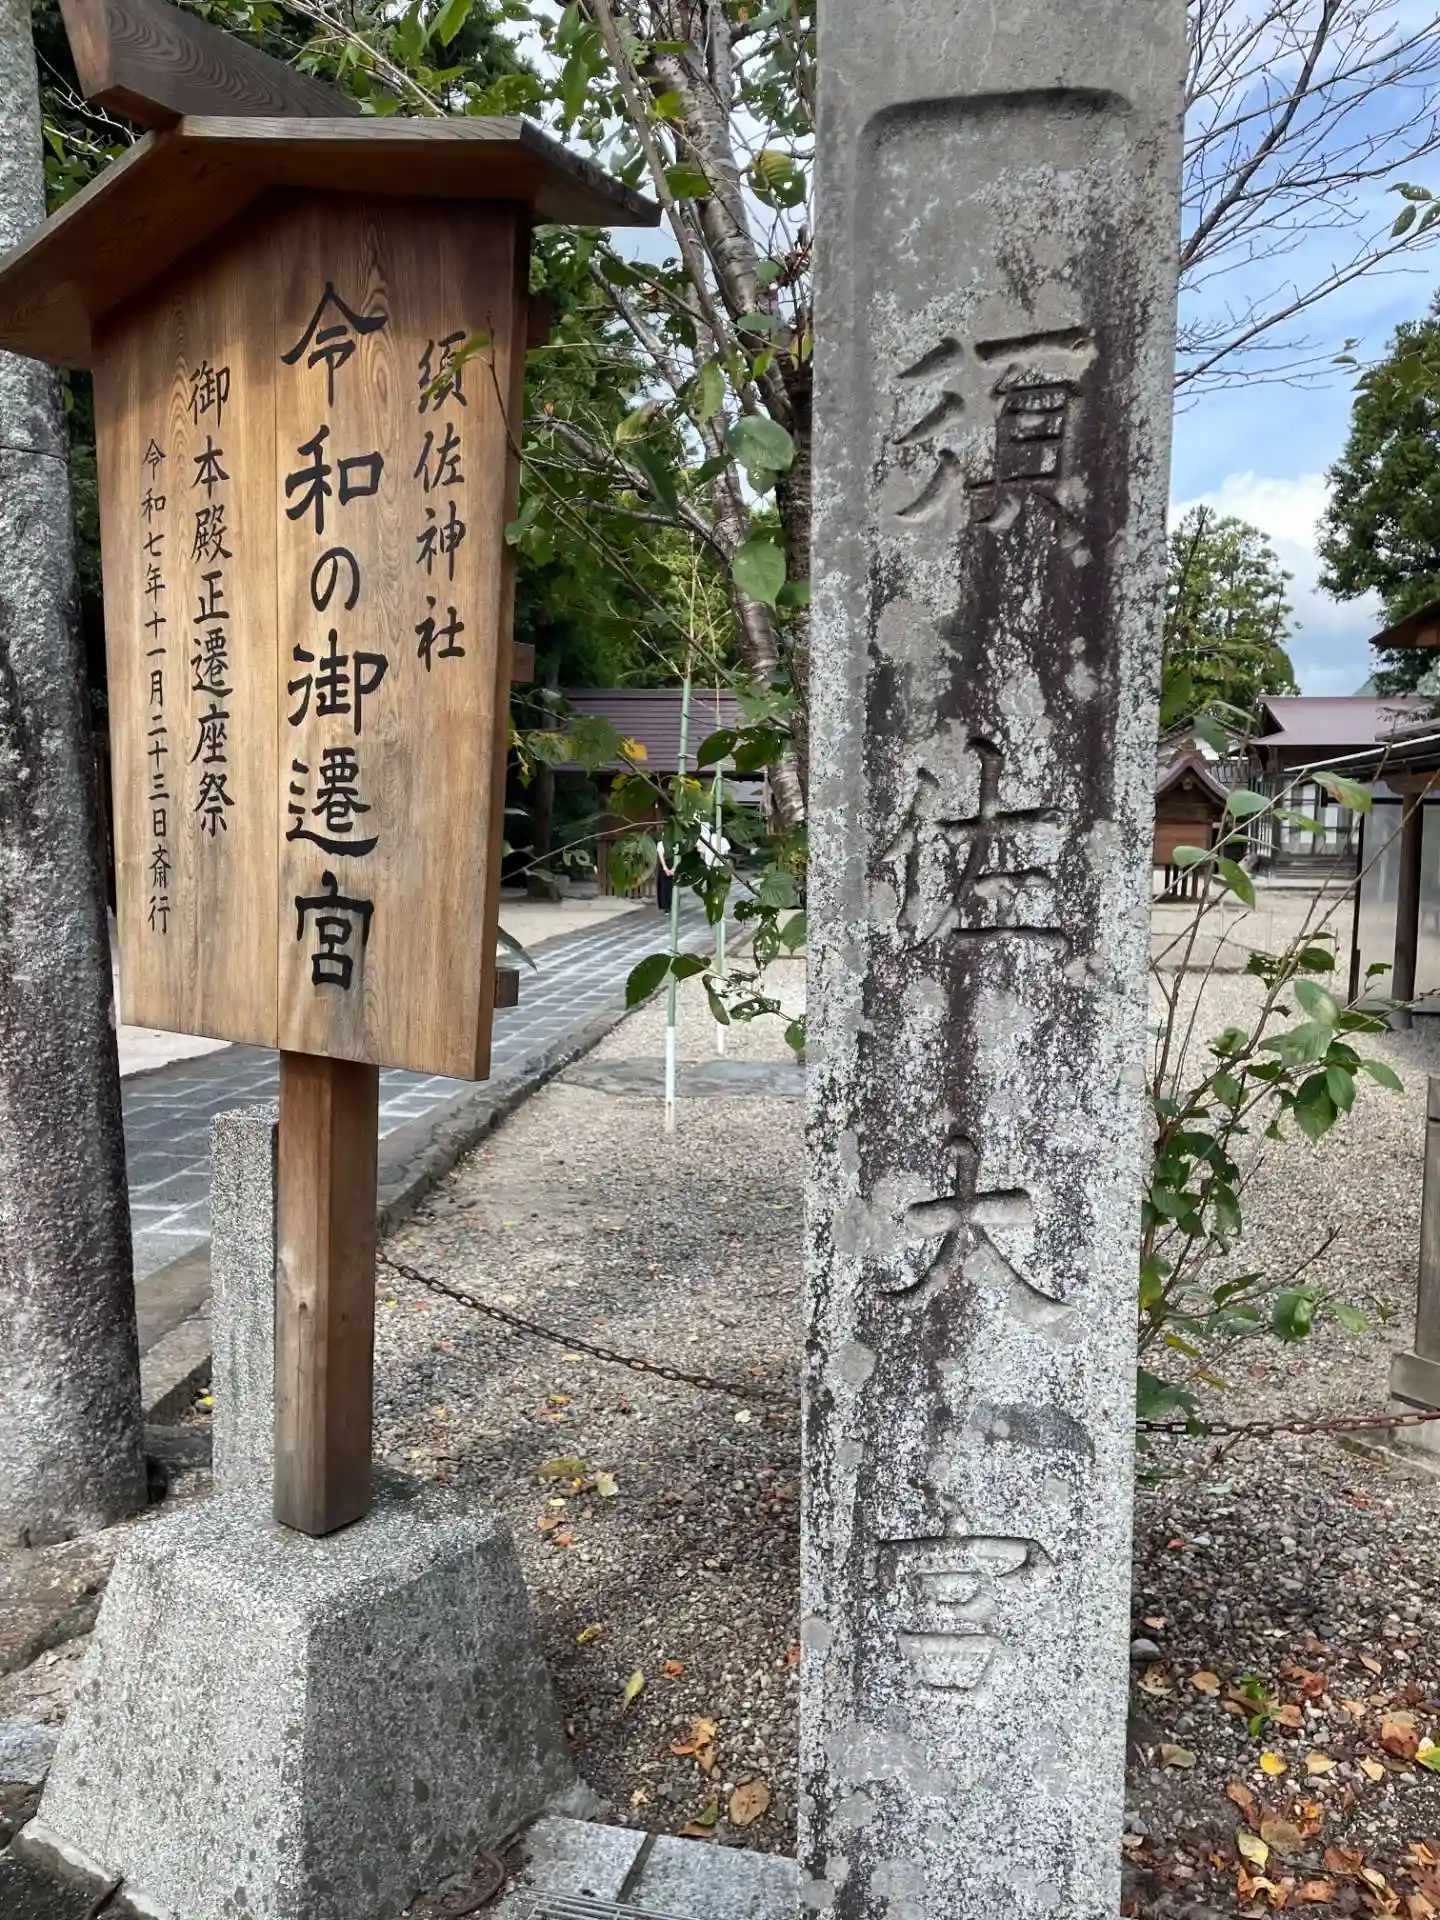 須佐神社
令和の御遷宮
御本殿正遷座祭
令和七年十一月二十三日斎行
須佐大宮